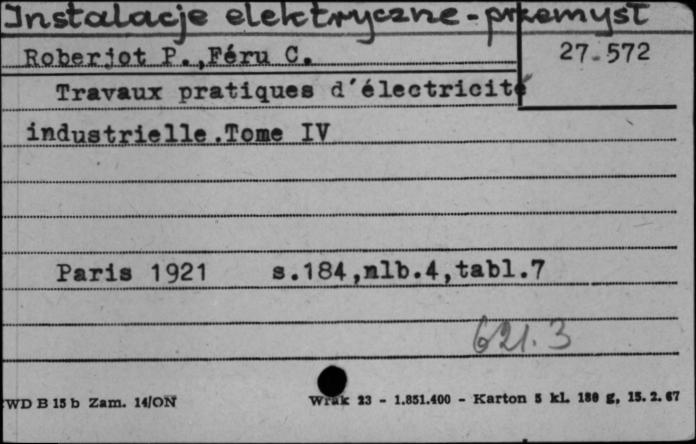 Instalacje elektryczne - przemysł
Roberjot P.,Féru C.
27.572
Travaux pratiques d'électricité
industrielle.Tome IV
Paris 1921 s.184,nlb.4,tabl.7
621.3
WD B 15 b Zam. 14/ON
Wrak 23 - 1.851.400 - Karton 5 kl. 180 g, 15. 2. 67